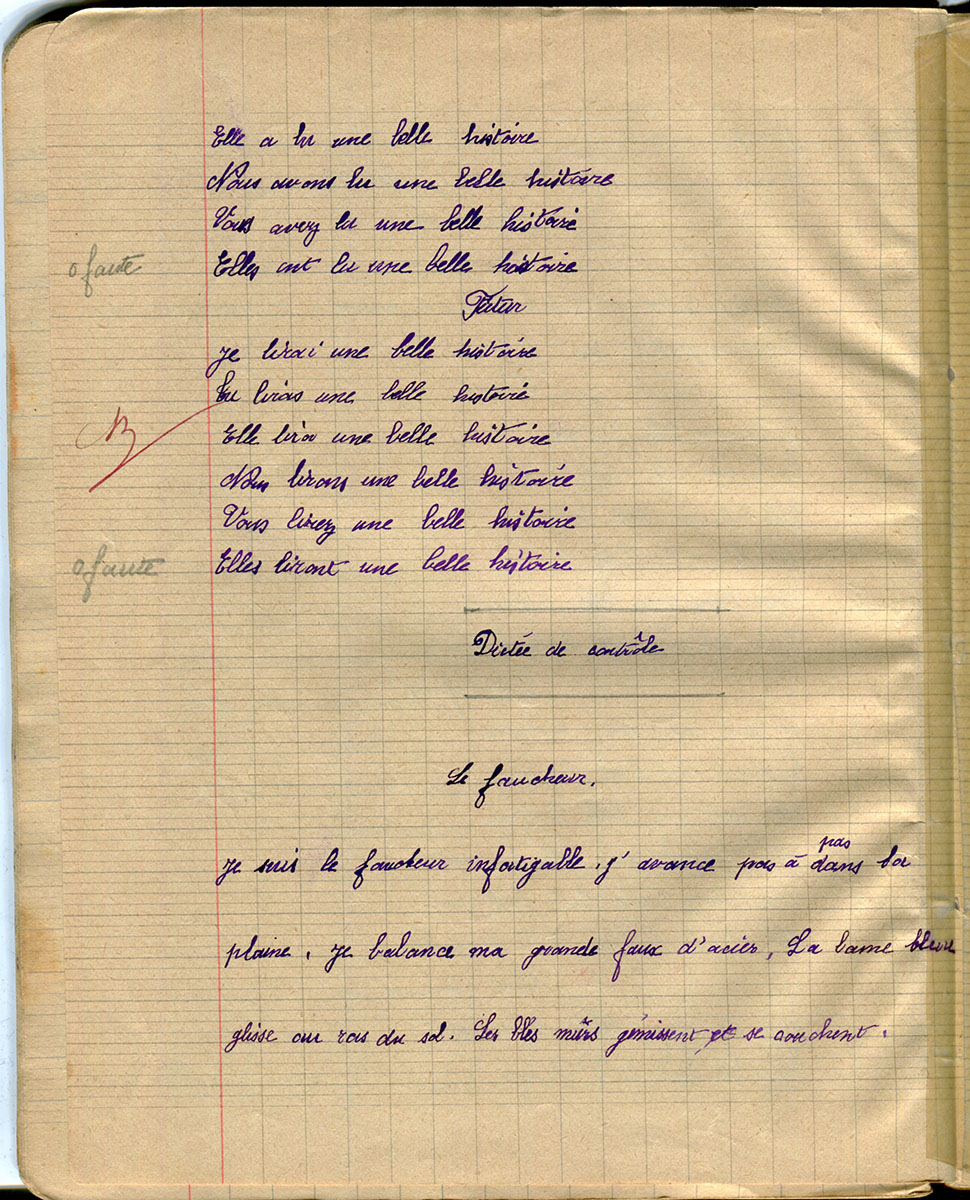 Elle a lu une belle histoire
Nous avons lu une belle histoire
Vous avez lu une belle histoire
0 faute Elles ont lu une belle histoire
Futur
Je lirai une belle histoire
Tu liras une belle histoire
B Elle lira une belle histoire
Nous lirons une belle histoire
Vous lirez une belle histoire
0 faute Elles liront une belle histoire
Dictée de contrôle
Le faucheur.
pas
Je suis le faucheur infatigable. j'avance pas à dans la
plaine. Je balance ma grande faux d'acier. La lame bleue
glisse au ras du sol. Les blés mûrs gémissent et se couchent.